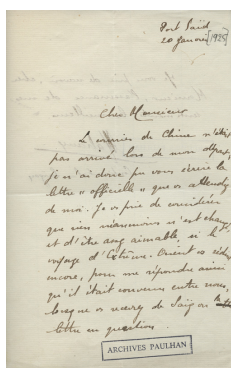 Port Saïd
20 Janvier [1925]
Cher Monsieur
Le courrier de Chine n'était
pas arrivé lors de mon départ,
je n'ai donc pu vous écrire la
lettre « officielle » que vous attendez
de moi. Je vous prie de considérer
que rien néanmoins n'est changé
et d'être assez aimable si le
voyage d'Extrême-Orient vous séduit
encore, pour me répondre ainsi
qu'il était convenu entre nous,
lorsque vous recevrez de Saïgon la
lettre en question.
ARCHIVES PAULHAN